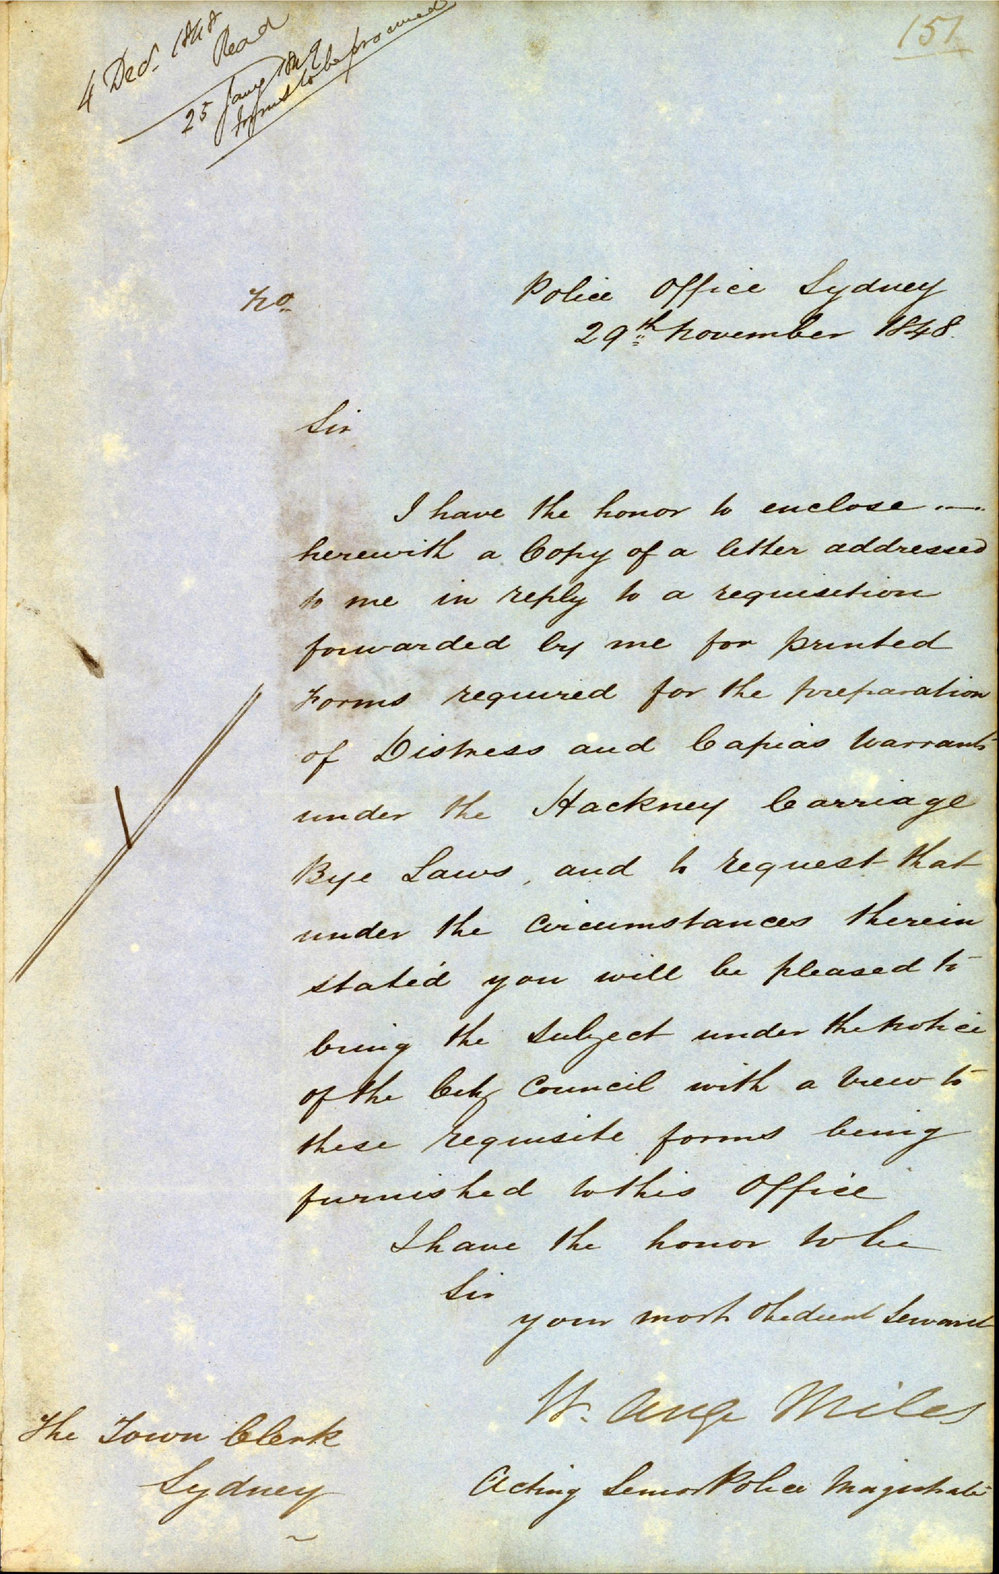 4 Decr. 1848
Read
25 Jany 1849
forms to be procured
151
No.
Police Office Sydney
29th November 1848.
Sir
I have the honor to enclose
herewith a Copy of a letter addressed
to me in reply to a requisition
forwarded by me for printed
Forms required for the preparation
of Distress and Capias Warrants
under the Hackney Carriage
Bye Laws, and to request that
under the circumstances therein
stated you will be pleased to
bring the subject under the notice
of the City Council with a view to
these requisite forms being
furnished to this Office
I have the honor to be
Sir
your most obedient Servant
W. Augs Miles
Acting Senior Police Magistrate
The Town Clerk
Sydney